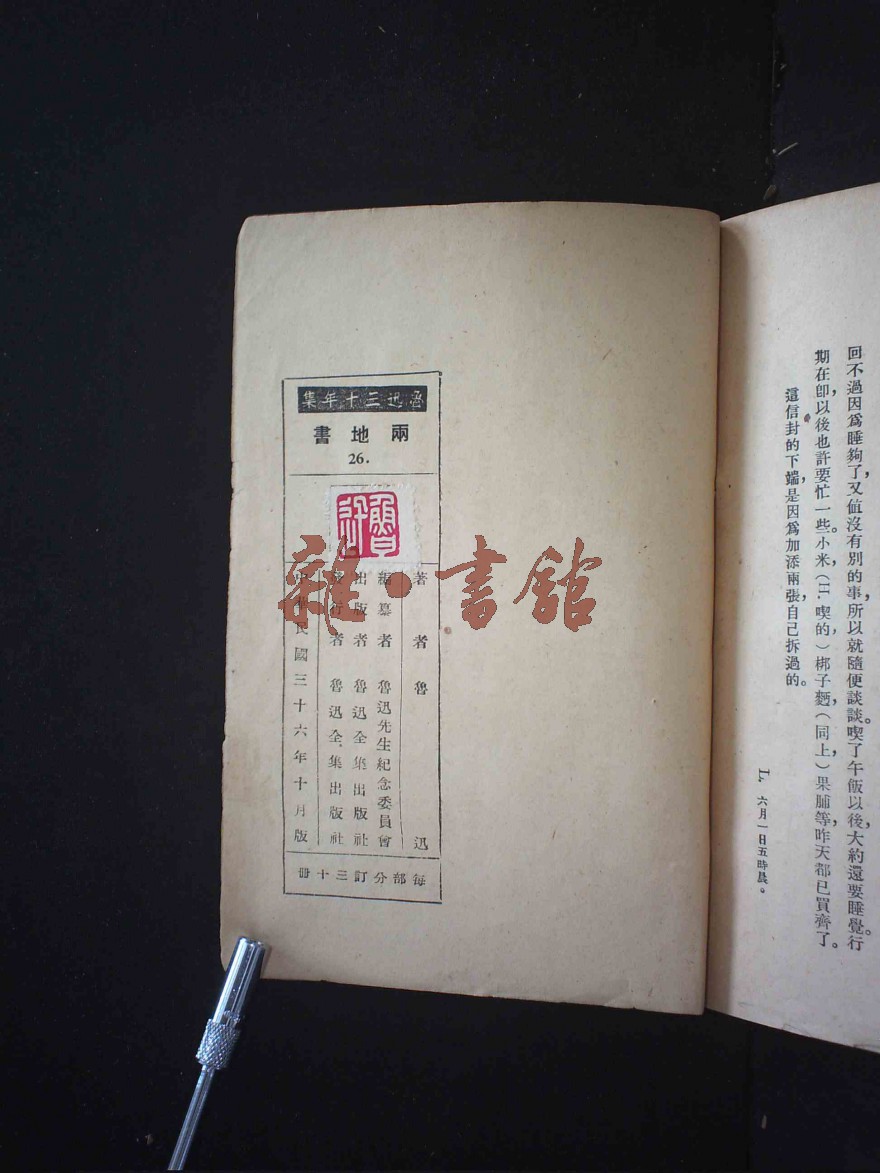 回不過因爲睡夠了，又值沒有別的事，所以就隨便談談。喫了午飯以後，大約還要睡覺。行
期在卽，以後也許要忙一些。小米（H. 喫的），梆子麪（同上），果脯等，昨天都已買齊了。
這信封的下端，是因爲加添兩張，自己拆過的。
L. 六月一日五時晨。
魯迅三十年集
兩地書
26.
魯迅
著者 魯迅
編纂者 魯迅先生紀念委員會
出版者 魯迅全集出版社
發行者 魯迅全集出版社
中華民國三十六年十月版
每部分訂三十冊
雜·書館